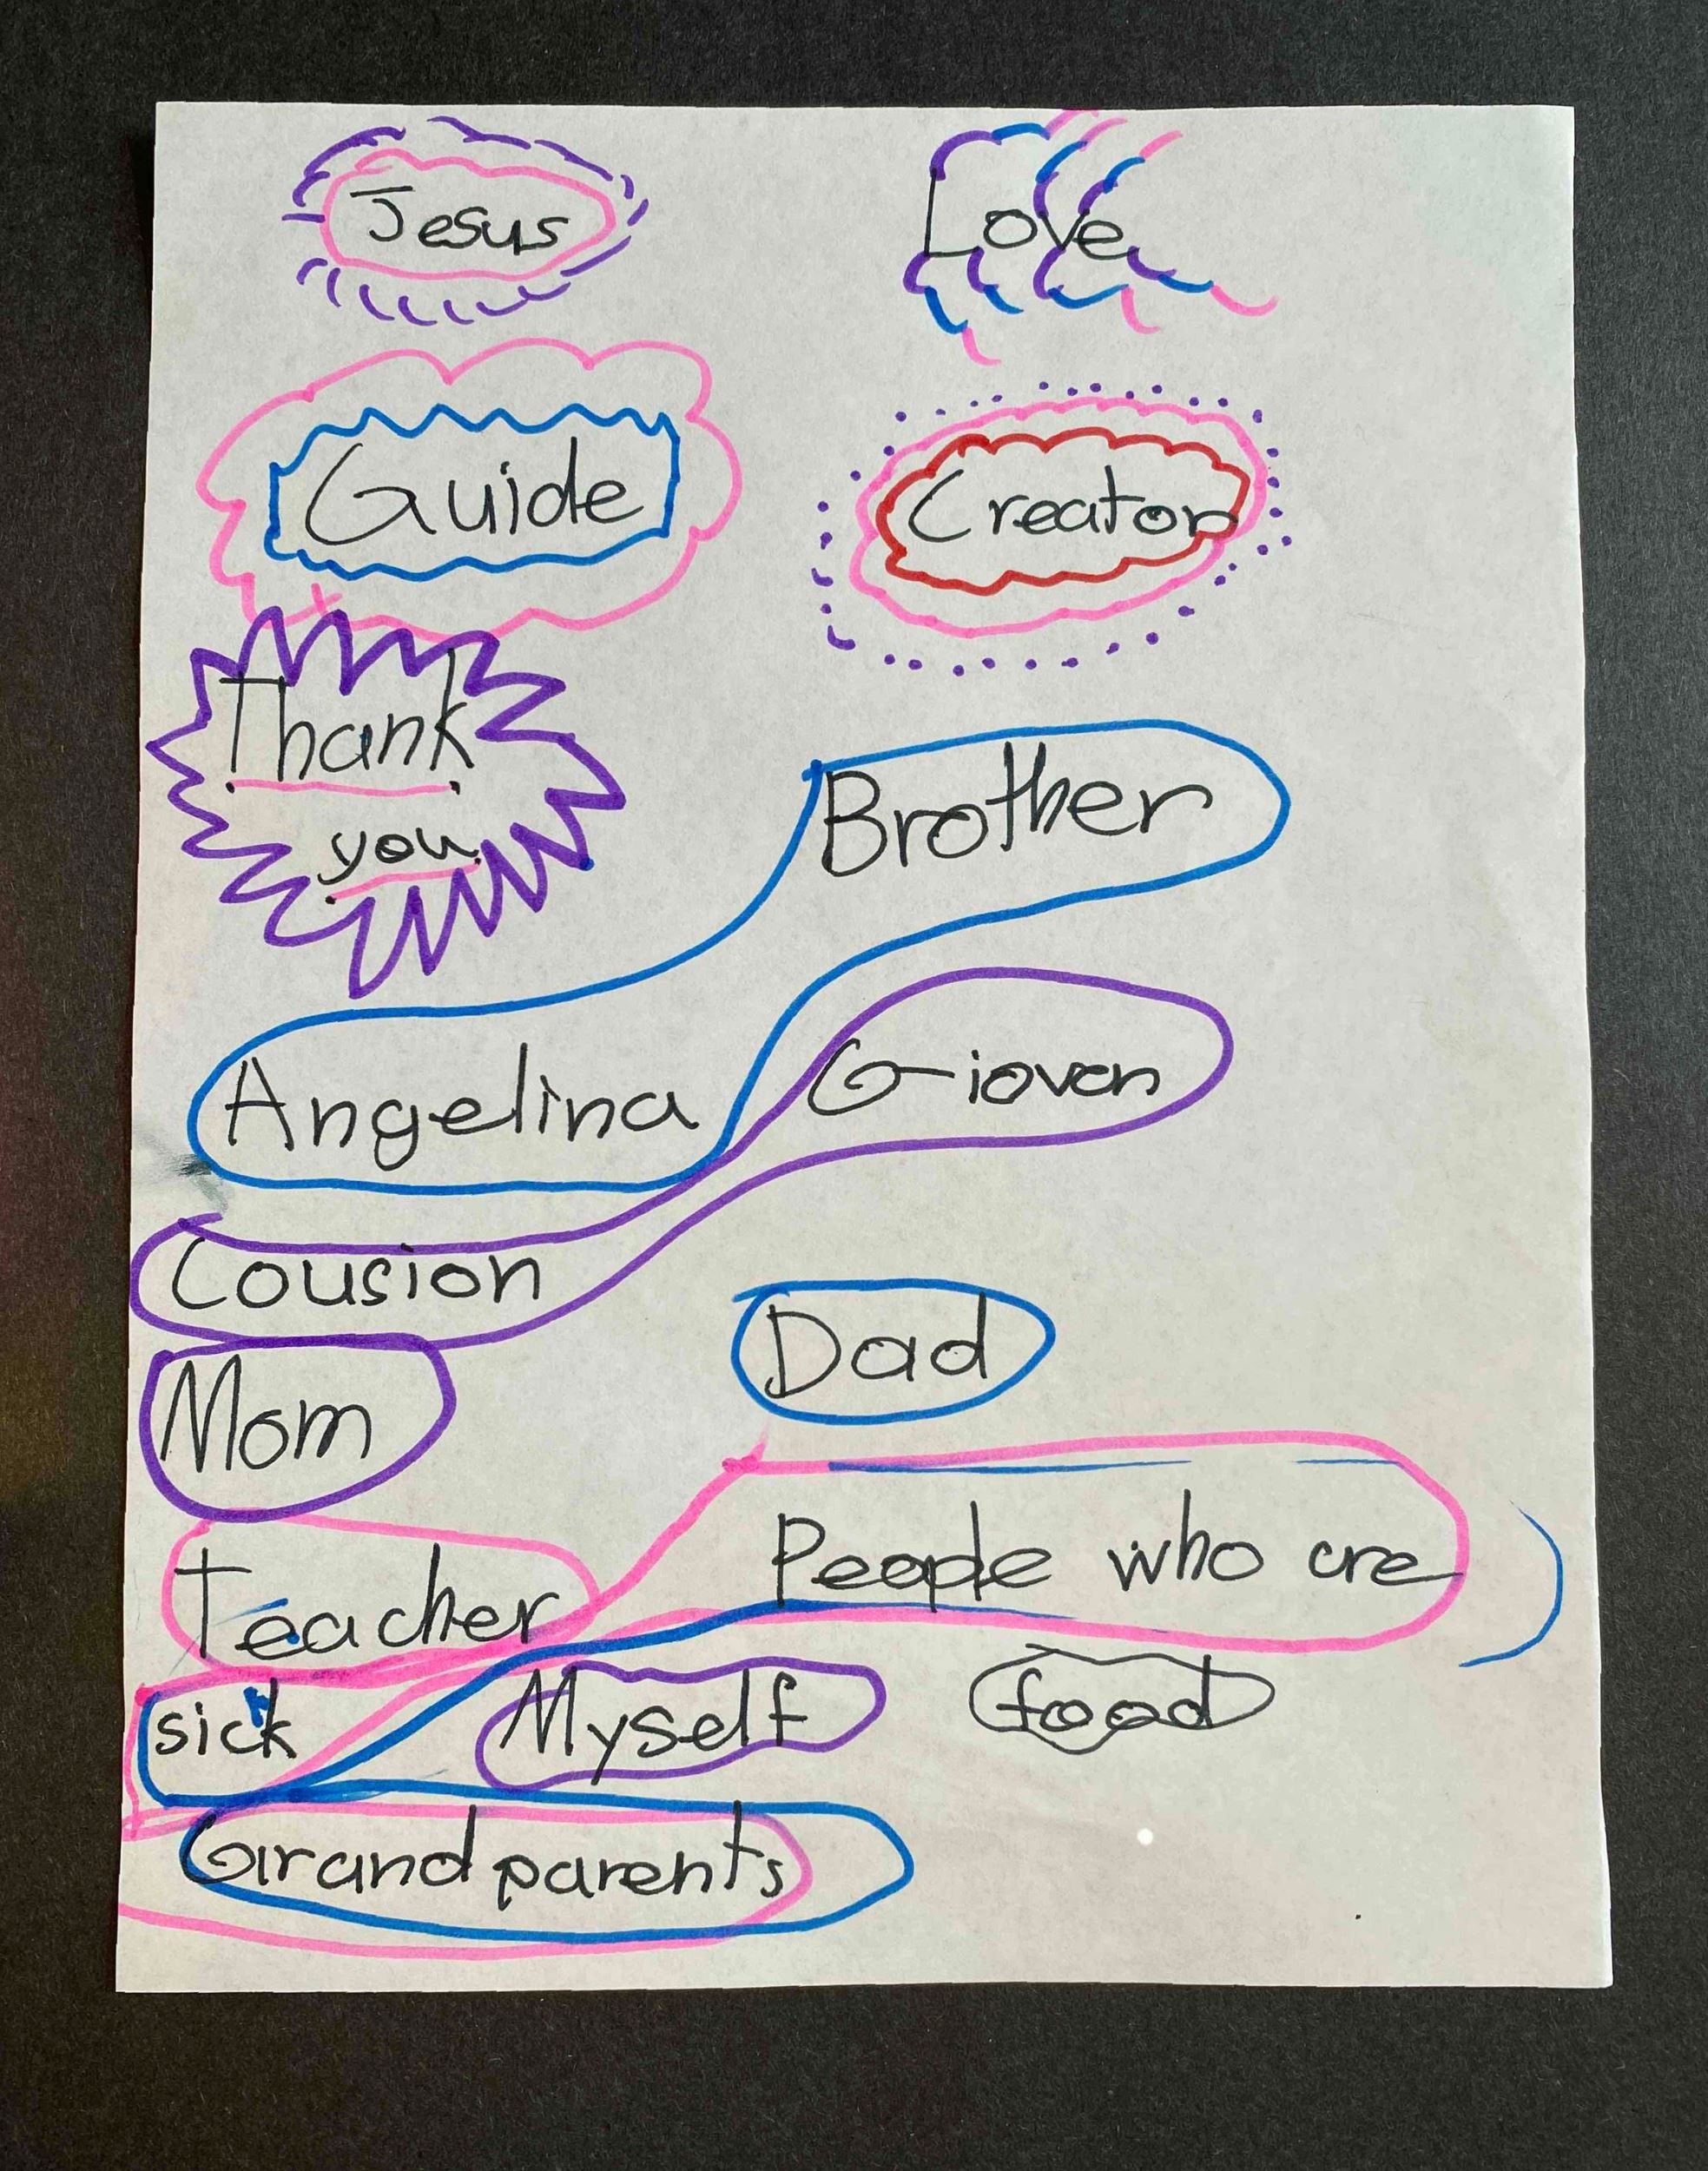 Jesus Love
Guide Creator
Thank
you
Brother
Angelina Giovan
Cousion
Dad
Mom
People who are
Teacher
sick Myself food
Grandparents